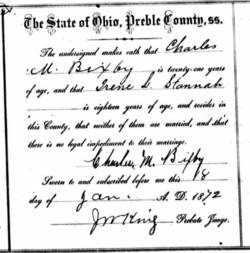 The State of Ohio, Preble County, ss.
The undersigned makes oath that Charles
M. Bixby is twenty-one years
of age, and that Irene L. Stannah
is eighteen years of age, and resides in
this County, that neither of them are married, and that
there is no legal impediment to their marriage.
Charles M. Bixby
Sworn to and subscribed before me this 18
day of Jan. A. D. 1872
J W King Probate Judge.